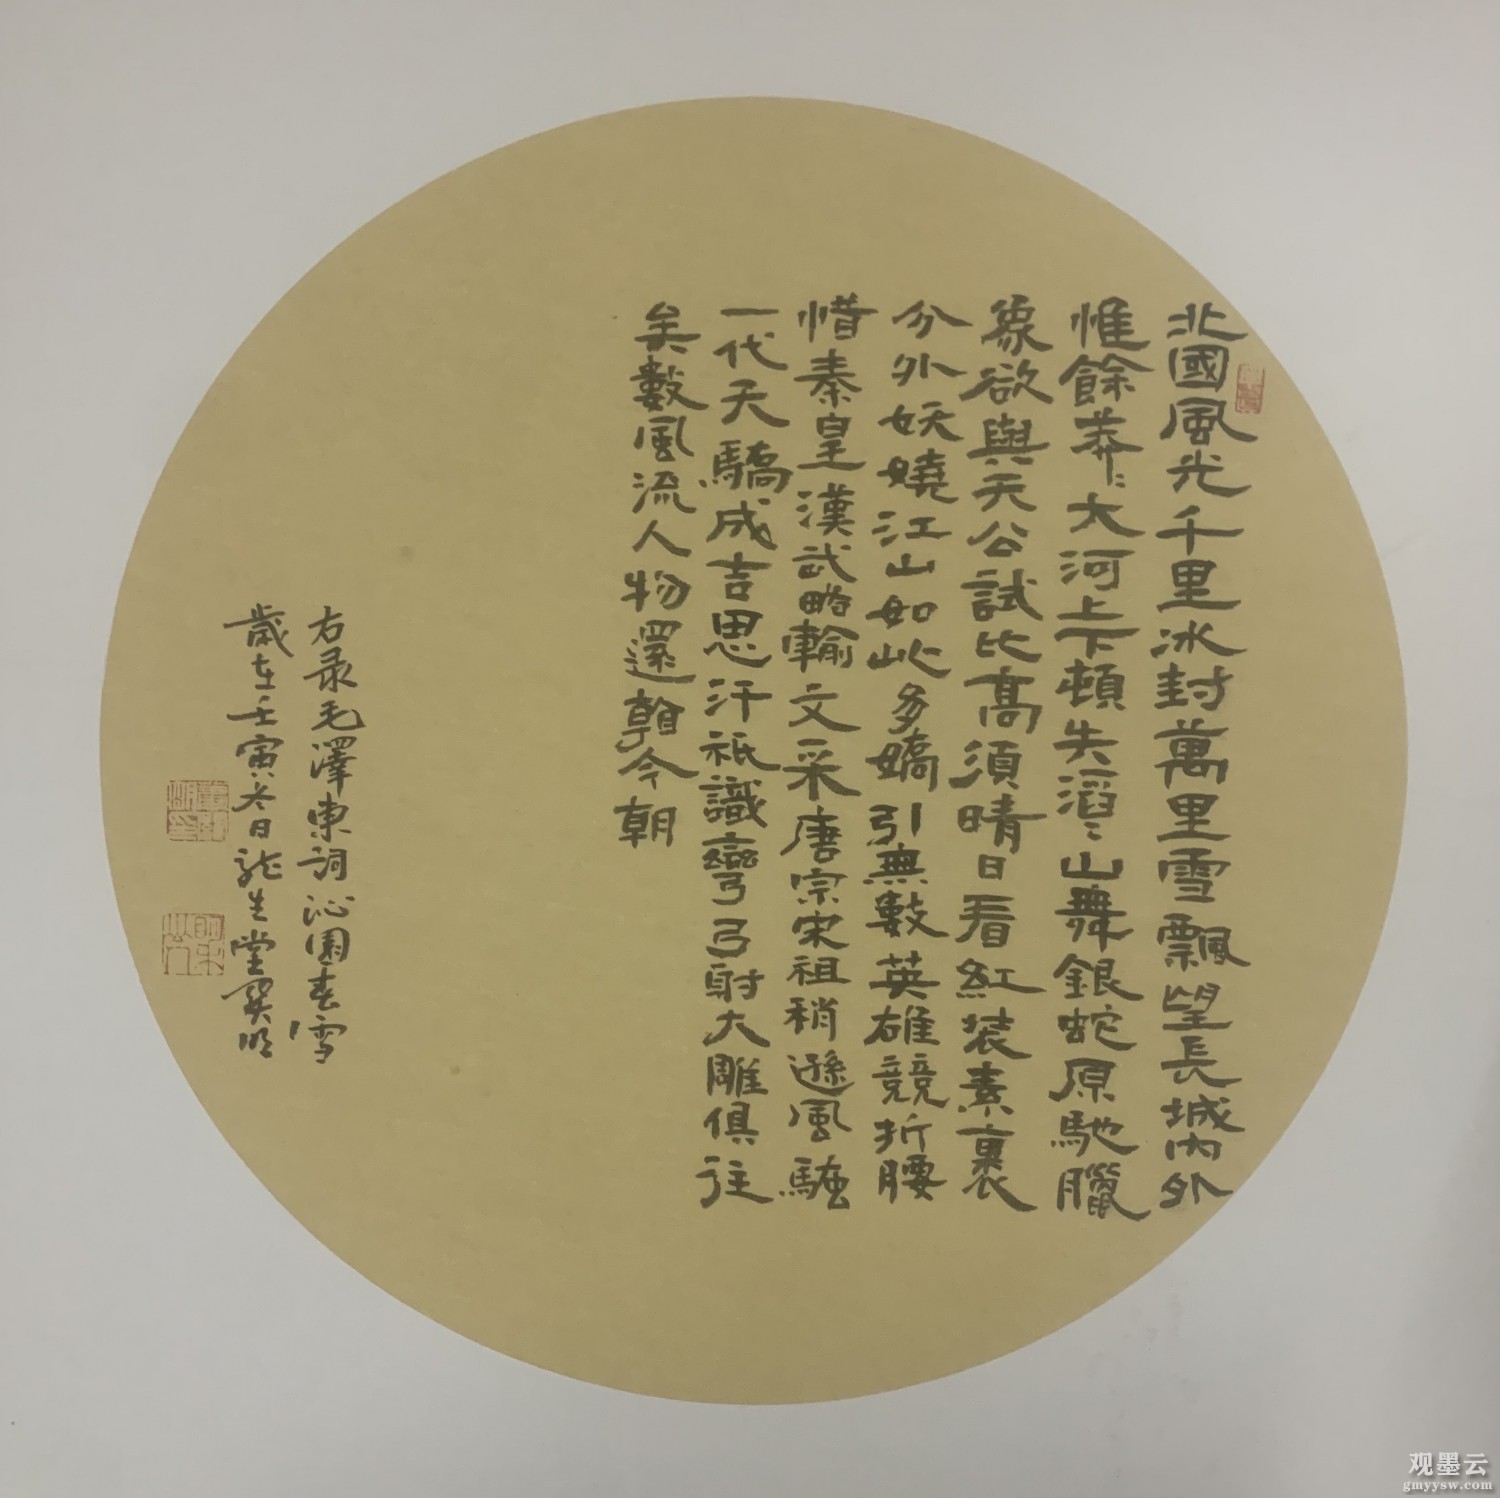 北國風光千里冰封萬里雪飄望長城內外
惟餘莽〻大河上下頓失滔〻山舞銀蛇原馳臘
象欲與天公試比高須晴日看紅裝素裹
分外妖嬈江山如此多嬌引無數英雄競折腰
惜秦皇漢武略輸文采唐宗宋祖稍遜風騷
一代天驕成吉思汗祇識彎弓射大雕俱往
矣數風流人物還看今朝
右录毛澤東詞沁園春雪
歲在壬寅冬日龍生堂
观墨云
gmyysw.com